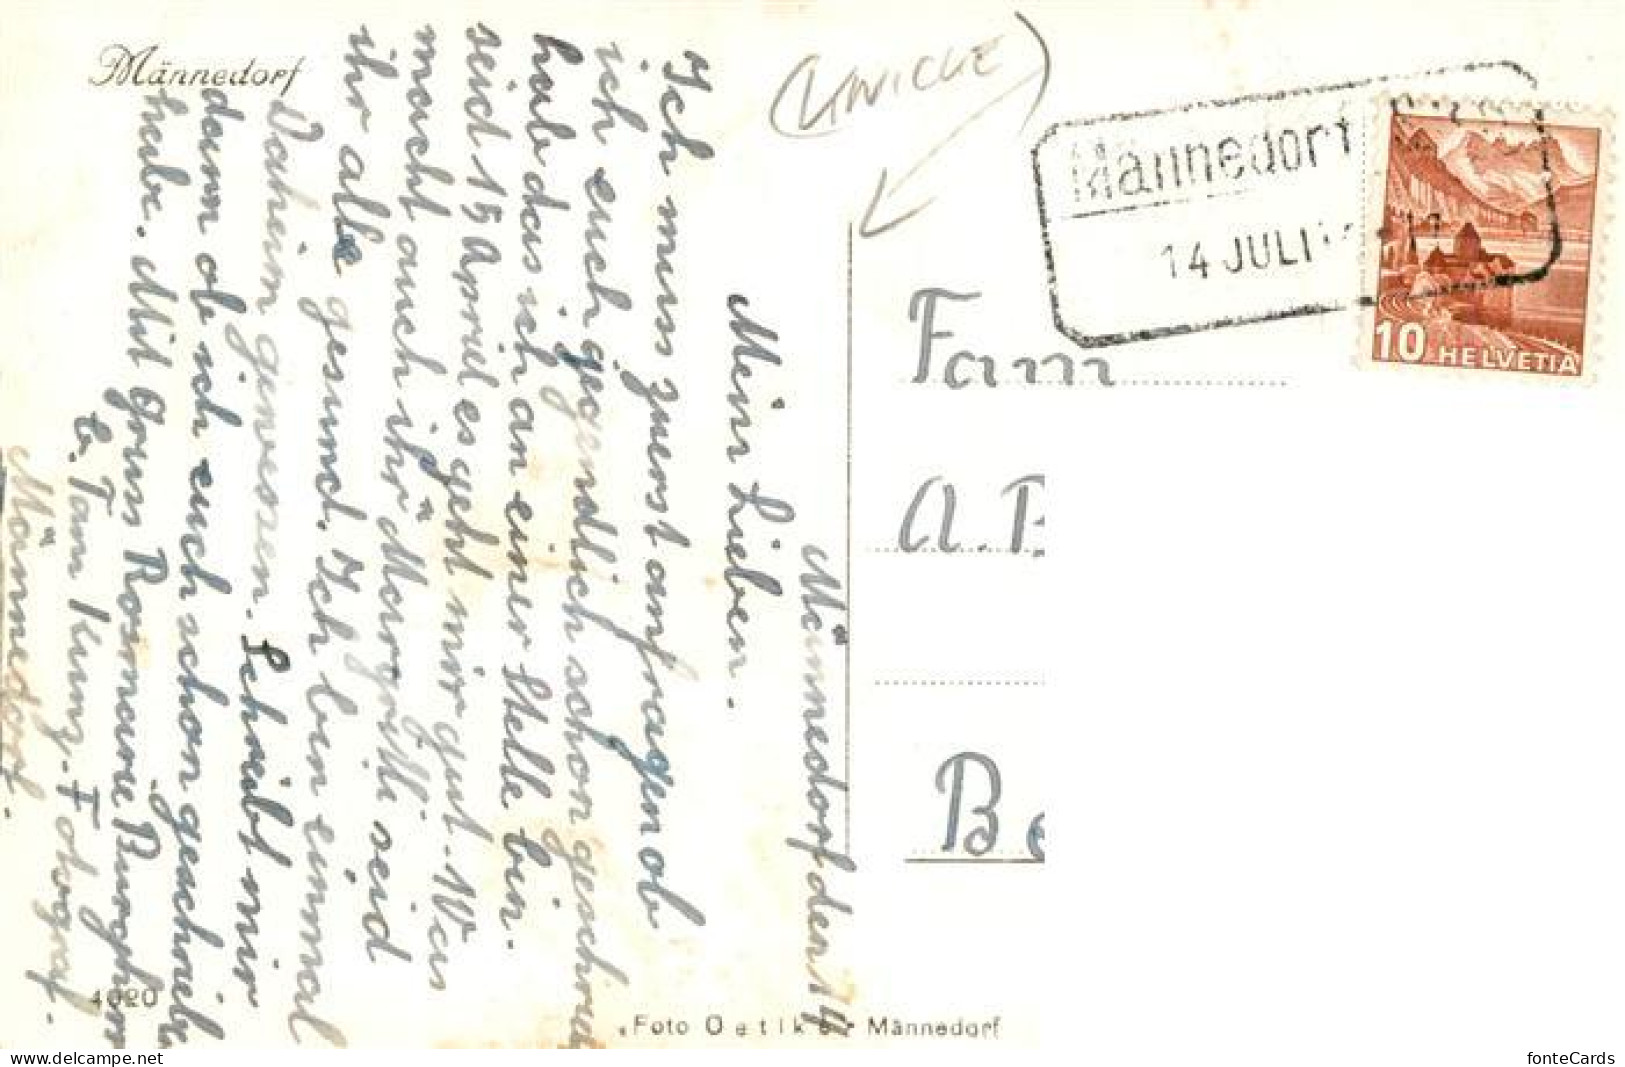 Männedorf
(UNICUE)
Männedorf
14 JULI
10 HELVETIA
Männedorf den 14
Mein Lieben.
Ich muss zuerst anfragen ob
ich euch gegendlich schon geschrieb
hab das ich an einer Stelle bin.
seid 15 April es geht mir gut. Was
macht auch ihr Margritli seid
ihr alle gesund. Ich bin einmal
Daheim gewessen. Schreibt mir
dann ob ich euch schon geschrieb
habe. Mit gruss Rosmarie Burghern
b. Fam Kunz. Fotograf.
Männedorf.
Fam
A. B
Be
4020
Foto Oetiker Männedorf
fonteCards